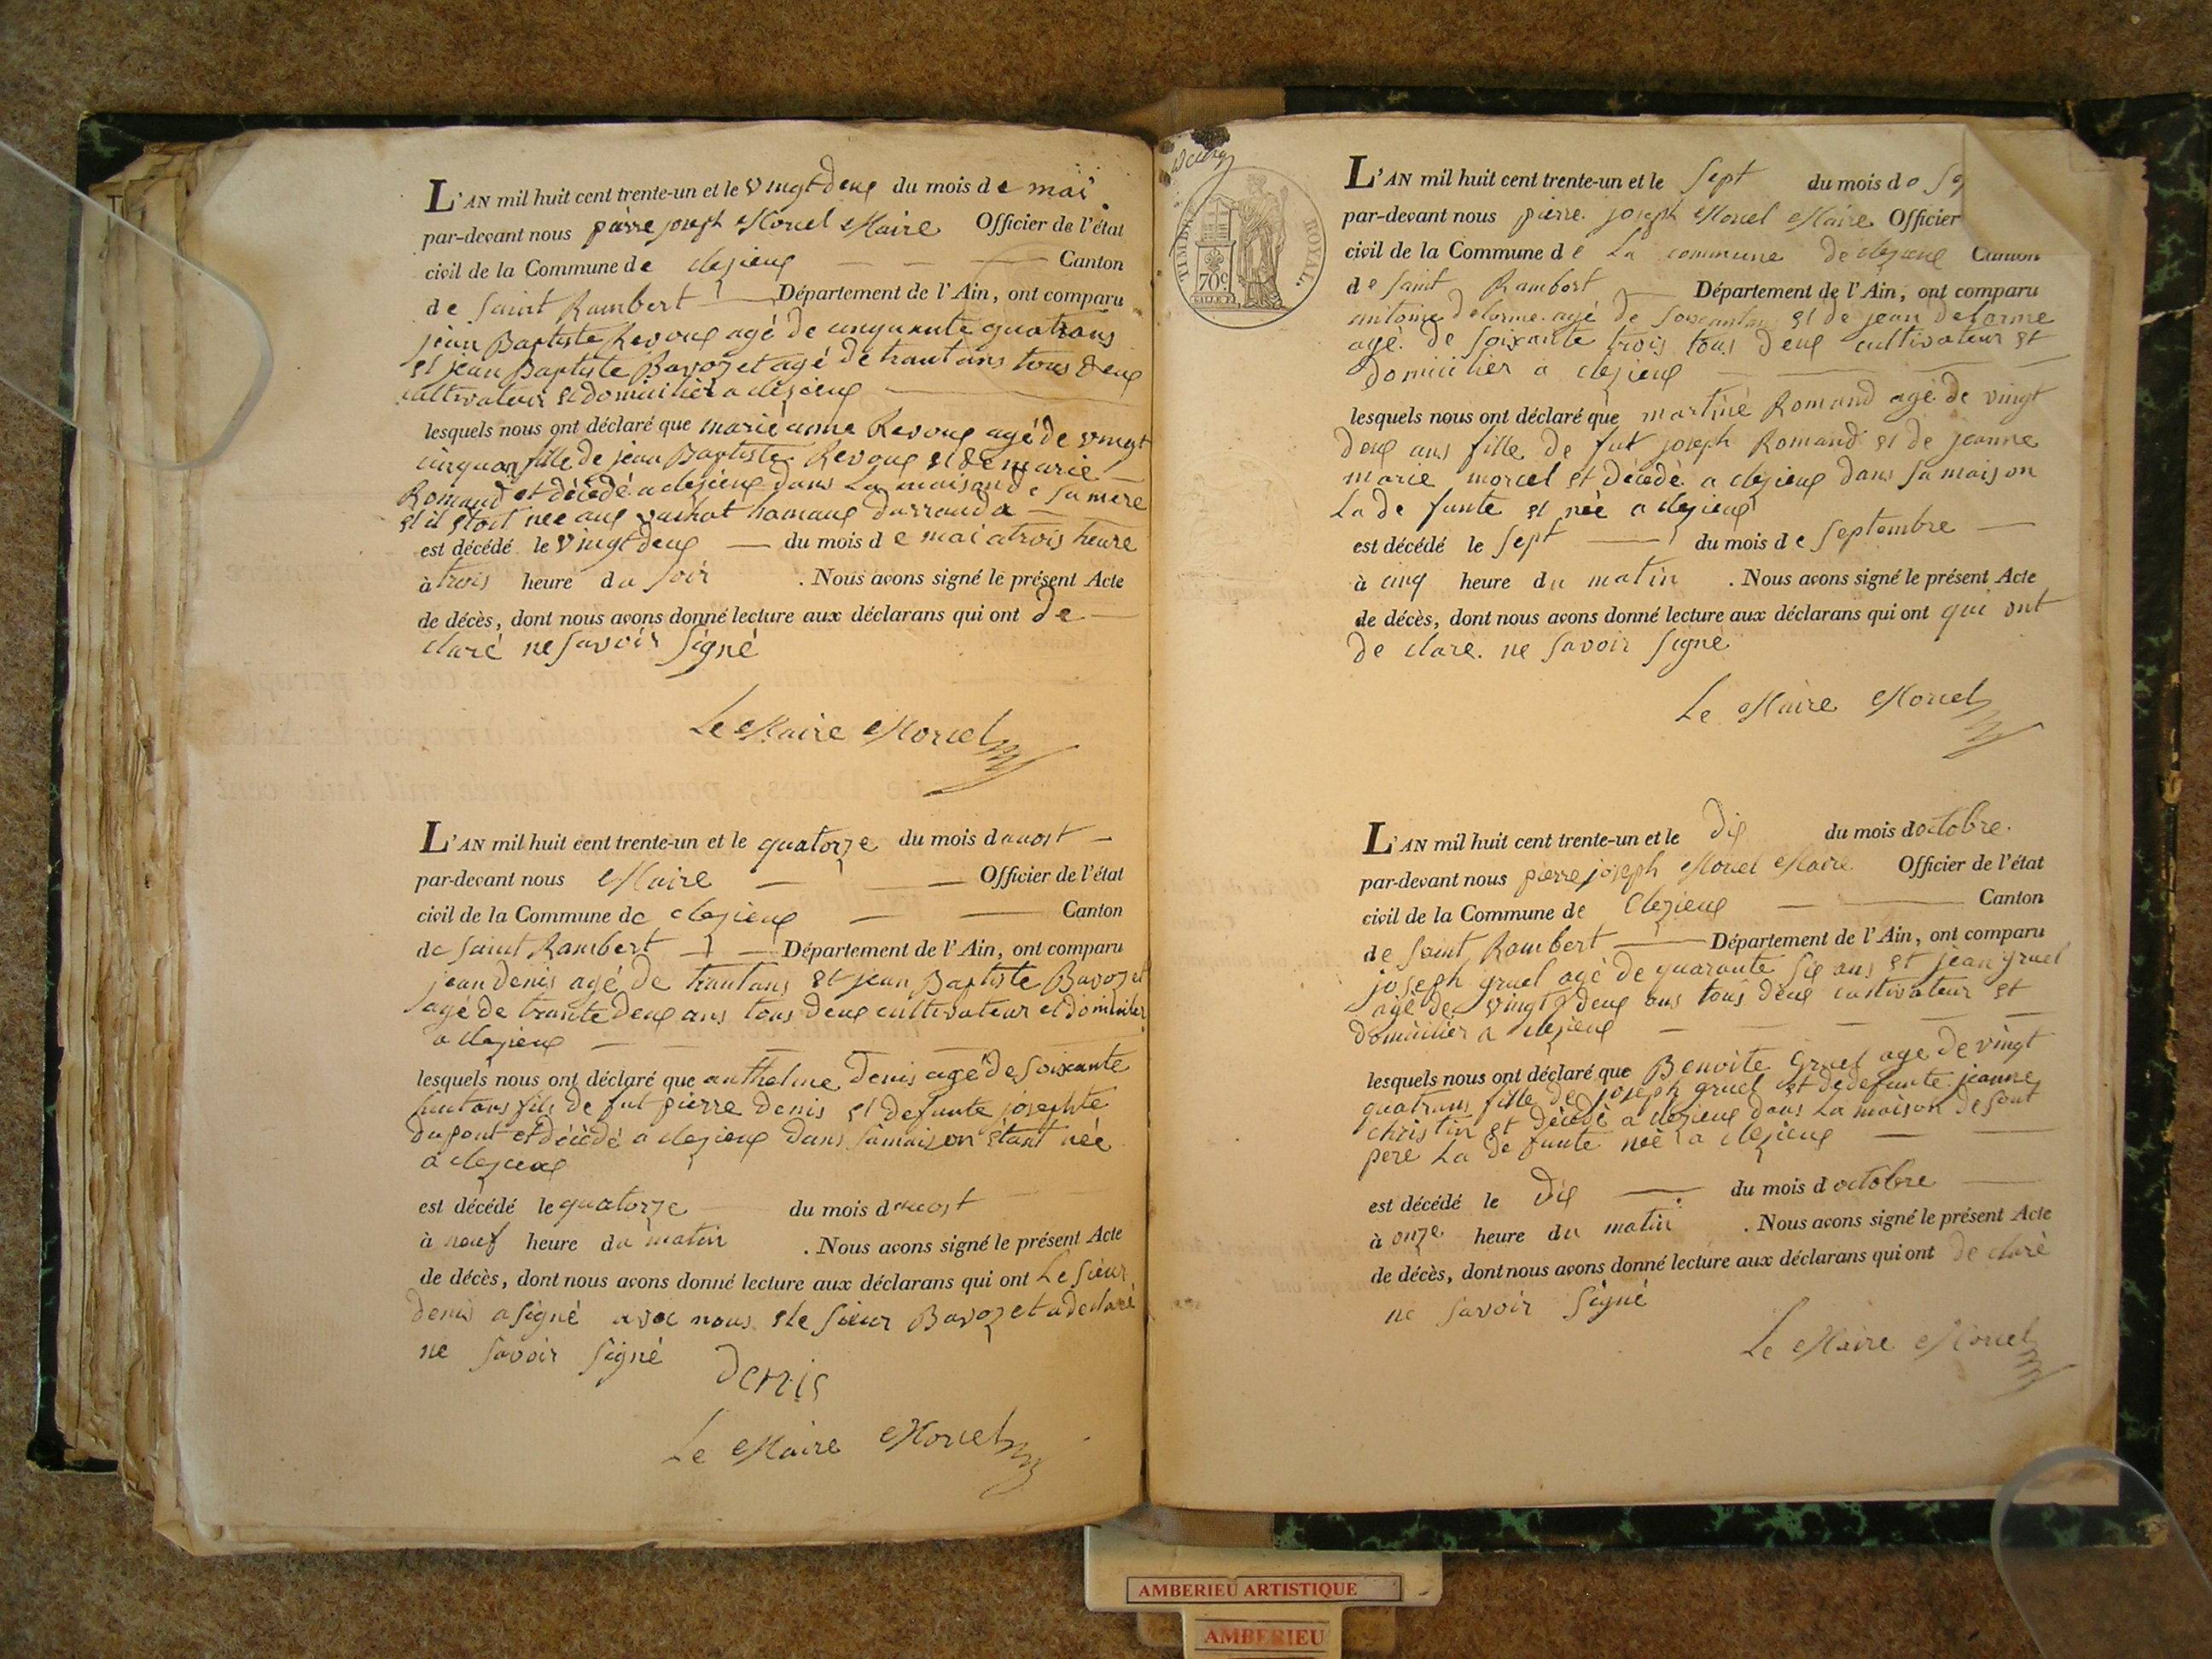 L'AN mil huit cent trente-un et le vingt deux du mois de mai
par-devant nous pierre joseph Morcel Maire Officier de l'état
civil de la Commune de clezieux Canton
de Saint Rambert Département de l'Ain, ont comparu
jean Baptiste Revoux agé de cinquante quatrans
et jean Baptiste Bavozet agé de trantans tous deux
cultivateur et domicilier a clezieux
lesquels nous ont déclaré que marie anne Revoux agé de vingt
cinquans fille de jean Baptiste Revoux et de marie
Romand et décédé a clezieux dans la maison de sa mere
et il etoit nee aux vachat hamaux darranda
est décédé le vingt deux du mois de mai a trois heure
à trois heure du soir . Nous avons signé le présent Acte
de décès, dont nous avons donné lecture aux déclarans qui ont de
claré ne savoir signé
Le Maire Morcel
L'AN mil huit cent trente-un et le quatorze du mois d auost
par-devant nous Maire Officier de l'état
civil de la Commune de clezieux Canton
de Saint Rambert Département de l'Ain, ont comparu
jean denis agé de trantans et jean Baptiste Bavozet
agé de trante deux ans tous deux cultivateur et domicilier
a clezieux
lesquels nous ont déclaré que anthelme denis agé de soixante
fils de fut pierre denis et defunte josephte
dupont et décédé a clezieux dans sa maison étant née
a clezieux
est décédé le quatorze du mois d auost
à neuf heure du matin . Nous avons signé le présent Acte
de décès, dont nous avons donné lecture aux déclarans qui ont Le sieur
denis a signé avec nous et le sieur Bavozet a declaré
ne savoir signé
Denis
Le Maire Morcel
TIMBRE ROYAL
70c
L'AN mil huit cent trente-un et le sept du mois de
par-devant nous pierre joseph Morcel Maire Officier
civil de la Commune de La commune de clezieux Canton
de Saint Rambert Département de l'Ain, ont comparu
antoine delorme agé de et de jean delorme
agé de soixante trois tous deux cultivateur et
domicilier a clezieux
lesquels nous ont déclaré que martine Romand agé de vingt
deux ans fille de fut joseph Romand et de jeanne
marie morcel et décédé a clezieux dans sa maison
La de funte et née a clezieux
est décédé le sept du mois de septembre
à cinq heure du matin . Nous avons signé le présent Acte
de décès, dont nous avons donné lecture aux déclarans qui ont qui ont
de claré ne savoir signé
Le Maire Morcel
L'AN mil huit cent trente-un et le dix du mois d octobre.
par-devant nous pierre joseph Morcel Maire Officier de l'état
civil de la Commune de Clezieux Canton
de Saint Rambert Département de l'Ain, ont comparu
joseph gruel agé de quarante six ans et jean gruel
agé de vingt deux ans tous deux cultivateur et
domicilier a clezieux
lesquels nous ont déclaré que Benoite Gruel age de vingt
quatrans fille de joseph gruel et de defunte jeanne
christin et décédé a clezieux dans la maison de sont
pere La de funte née a clezieux
est décédé le dix du mois d octobre
à onze heure du matin . Nous avons signé le présent Acte
de décès, dont nous avons donné lecture aux déclarans qui ont de claré
ne savoir signé
Le Maire Morcel
AMBERIEU ARTISTIQUE
AMBERIEU